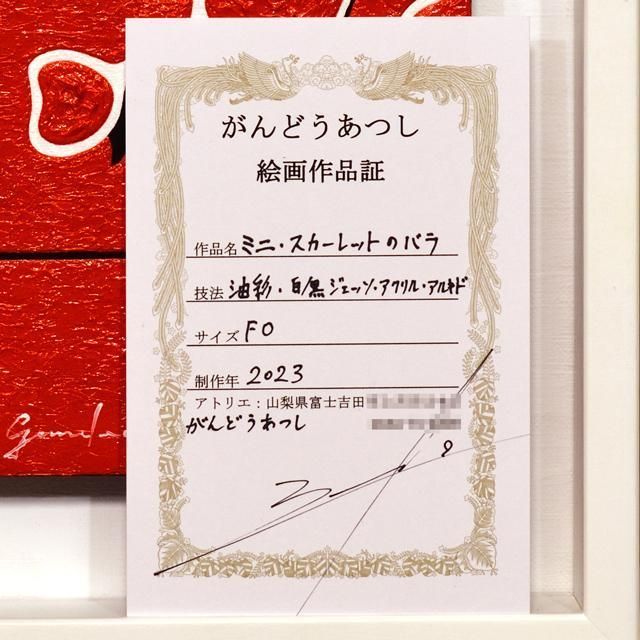 がんどうあつし
絵画作品証
作品名 ミニ・スカーレットのバラ
技法 油彩・白黒ジェッソ・アクリル・アルキド
サイズ F0
制作年 2023
アトリエ：山梨県富士吉田
がんどうあつし